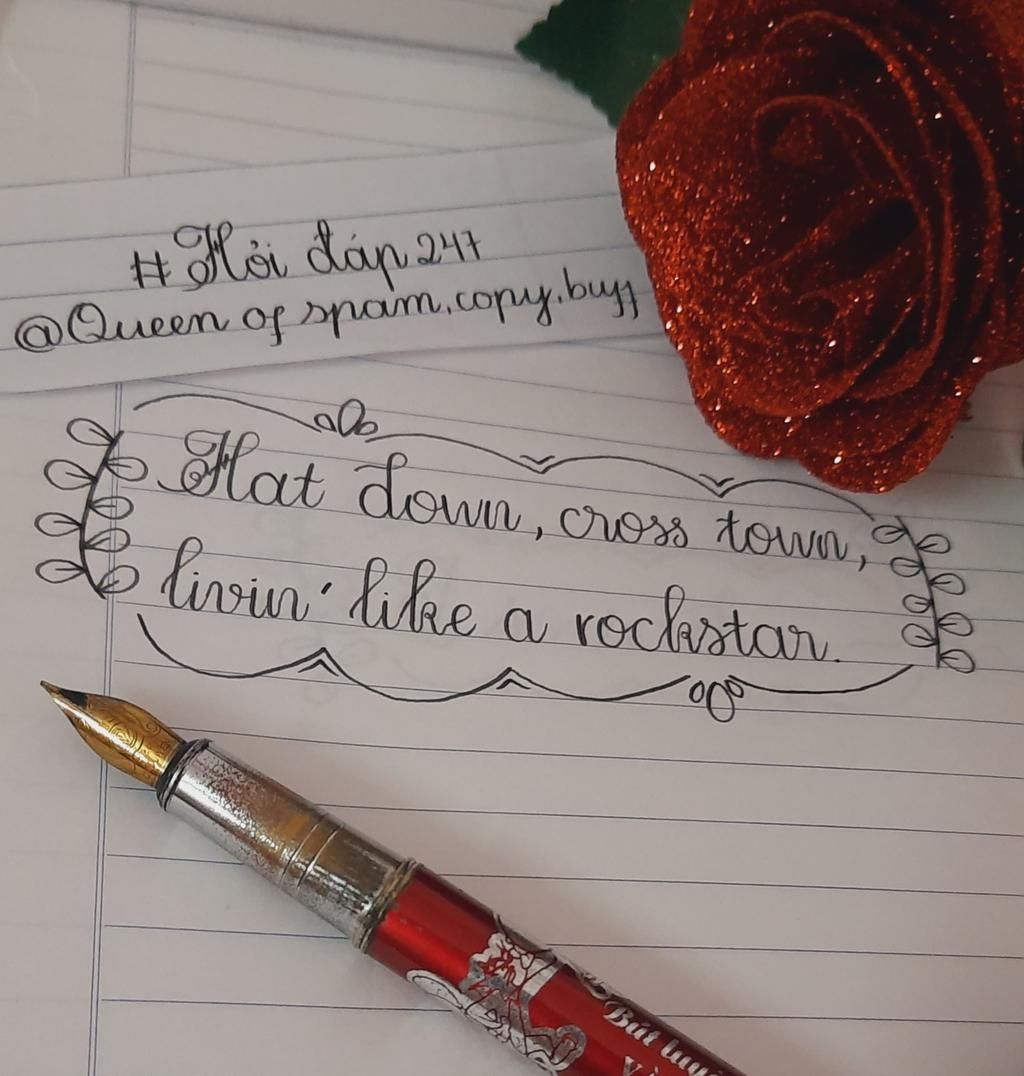 # Hỏi đáp 247
@Queen of spam.copy.buff
Hat down, cross town,
livin' like a rockstar.
Bút luyệ